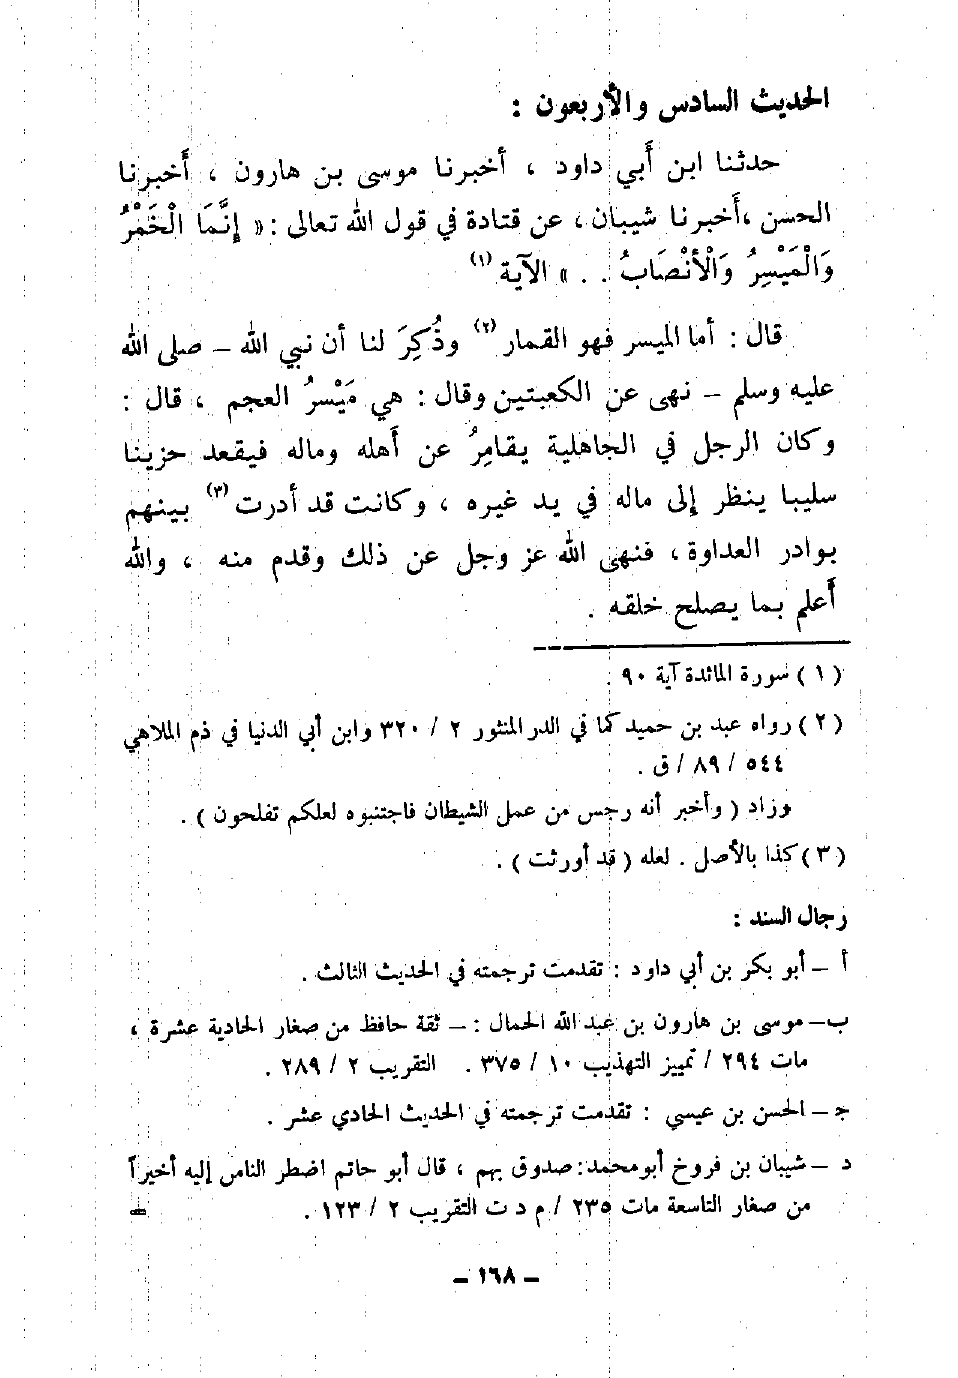 الحديث السادس والأربعون :
حدثنا ابن أَبي داود ، أخبرنا موسى بن هارون ، أَخبرنا
الحسن ،أَخبرنا شيبان، عن قتادة في قول الله تعالى : « إِنَّمَا الْخَمْرُ
وَالْمَيْسِرُ وَالْأَنْصَابُ . . » الآية (١)
قال : أما الميسر فهو القمار (٢) وذُكِرَ لنا أن نبي الله – صلى الله
عليه وسلم – نهى عن الكعبتين وقال : هي مَيْسرُ العجم ، قال :
وكان الرجل في الجاهلية يقامِرُ عن أَهله وماله فيقعد حزينا
سليبا ينظر إلى ماله في يد غيره ، وكانت قد أدرت (٣) بينهم
بوادر العداوة ، فنهى الله عز وجل عن ذلك وقدم منه ، والله
أَعلم بما يصلح خلقه .
( ١ ) سورة المائدة آية ٩٠ .
( ٢ ) رواه عبد بن حميد كما في الدر المنثور ٢ / ٣٢٠ وابن أبي الدنيا في ذم الملاهي
٥٤٤ / ٨٩ / ق .
وزاد ( وأخبر أنه رجس من عمل الشيطان فاجتنبوه لعلكم تفلحون ) .
( ٣ ) كذا بالأصل . لعله ( قد أورثت ) .
رجال السند :
أ – أبو بكر بن أبي داود : تقدمت ترجمته في الحديث الثالث .
ب– موسى بن هارون بن عبد الله الحمال : – ثقة حافظ من صغار الحادية عشرة ،
مات ٢٩٤ / تمييز التهذيب ١٠ / ٣٧٥ . التقريب ٢ / ٢٨٩ .
جـ – الحسن بن عيسي : تقدمت ترجمته في الحديث الحادي عشر .
د – شيبان بن فروخ أبومحمد: صدوق يهم ، قال أبو حاتم اضطر الناس إليه أخيراً
من صغار التاسعة مات ٢٣٥ / م د ت التقريب ٢ / ١٢٣ .
– ١٦٨ –